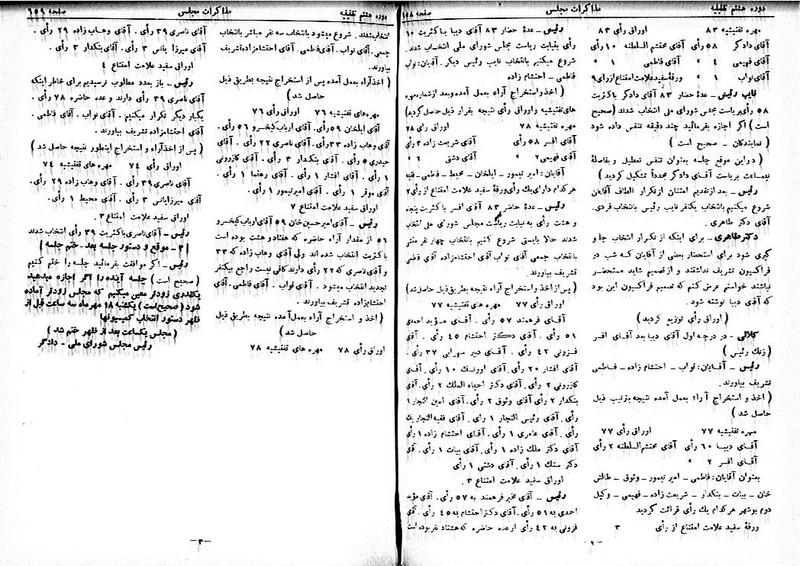 دوره هشتم تقنینیه
مذاکرات مجلس
صفحه ۱۵۸
مهره تفتیشیه ۸۳ اوراق رأی ۸۳
آقای دادگر ۵۸ رأی آقای محتشم السلطنه ۱۰ رأی
آقای فهیمی ۴ » آقای فاطمی ۱ »
آقای نواب ۱ » ورقهٔ سفید علامت امتناع از رأی ۹
نایب رئیس - عدهٔ حضار ۸۳ آقای دادگر باکثریت
۵۸ رأی بریاست مجلس شورای ملی انتخاب شدند (صحیح
است) اگر اجازه بفرمائید چند دقیقه تنفس داده شود
(نمایندگان - صحیح است)
(در این موقع جلسه بعنوان تنفس تعطیل و بفاصلهٔ
نیمساعت بریاست آقای دادگر مجدداً تشکیل گردید)
رئیس - بعد از تقدیم امتنان از تکرار الطاف آقایان
شروع میکنیم بانتخاب یکنفر نایب رئیس بانتخاب فردی.
آقای دکتر طاهری.
دکتر طاهری - برای اینکه از تکرار انتخاب جلو
گیری شود برای استحضار بعضی از آقایان که شب در
فراکسیون تشریف نداشتند و از تصمیم شاید مستحضر
نباشند خواستم عرض کنم که تصمیم فراکسیون این بود
که آقای دیبا نوشته شود.
(اوراق رأی توزیع گردید)
کلالی - در درجه اول آقای دیبا بعد آقای افسر
(زنگ رئیس)
رئیس - آقایان: نواب - احتشام زاده - فاطمی
تشریف بیاورند.
(اخذ و استخراج آراء بعمل آمده نتیجه بترتیب ذیل
حاصل شد)
مهره تفتیشیه ۷۷ اوراق رأی ۷۷
آقای دیبا ۶۰ رأی آقای محتشم السلطنه ۲ رأی
آقای افسر ۲ »
بعنوان آقایان: فاطمی - امیر تیمور - وثوق - طالش
خان - بیات - بنکدار - شریعت زاده - فهیمی - وکیل
دوم بوشهر هرکدام یک رأی قرائت گردید
ورقهٔ سفید علامت امتناع از رأی ۳
رئیس - عدهٔ حضار ۸۳ آقای دیبا باکثریت ۶۰
رأی بنیابت ریاست مجلس شورای ملی انتخاب شدند.
شروع میکنیم بانتخاب نایب رئیس دیگر. آقایان: نواب
فاطمی - احتشام زاده
(اخذ و استخراج آراء بعمل آمده و بعد از شماره مهره
های تفتیشیه و اوراق رأی نتیجه بقرار ذیل حاصل گردید)
مهره تفتیشیه ۷۸ اوراق رأی ۷۸
آقای افسر ۵۸ رأی آقای شریعت زاده ۳ رأی
آقای فهیمی ۲ » آقای دشتی ۲ »
آقایان: امیر تیمور - ایلخان - محیط - فاطمی - فقیه
هرکدام دارای یک رأی ورقهٔ سفید علامت امتناع از رأی ۲
رئیس - عدهٔ حضار ۸۳ آقای افسر باکثریت پنجاه
و هشت رأی به نیابت ریاست مجلس شورای ملی انتخاب
شدند حالا بایستی شروع کنیم بانتخاب چهار نفر منشی
بانتخاب جمعی آقای نواب آقای احتشامزاده آقای فاطمی
تشریف بیاورند.
(پس از اخذ و استخراج آراء نتیجه بطریق ذیل حاصل شد)
اوراق رأی ۷۷ مهره های تفتیشیه ۷۷
آقای فرهمند ۵۷ رأی. آقای مؤید احمدی
۵۱ رأی. آقای دکتر احتشام ۴۵ رأی. آقای
قزونی ۴۲ رأی. آقای دبیر سهرابی ۳۷ رأی.
آقای افشار ۲۰ رأی. آقای اورنک ۱۰ رأی. آقای
کازرونی ۲ رأی. آقای دکتر احیاء الملک ۲ رأی. آقای
بنکدار ۲ رأی. آقای وثوق ۲ رأی. آقای امین التجار ۱
رأی. آقای رئیس التجار ۱ رأی. آقای فقیه التجار یک
رأی. آقای عامری ۱ رأی. آقای احتشام زاده ۱ رأی
آقای دکتر ملک زاده ۱ رأی. آقای بیات ۱ رأی. آقای
دکتر سنک ۱ رأی. آقای دشتی ۱ رأی
اوراق سفید علامت امتناع ۳.
رئیس - آقای مخبر فرهمند به ۵۷ رأی. آقای مؤید
احمدی به ۵۱ رأی. آقای دکتر احتشام به ۴۵ رأی. آقای
قزونی به ۴۲ رأی از عده حاضره که هشتاد نفر بوده است
-۲-
دوره هشتم تقنینیه
مذاکرات مجلس
صفحه ۱۵۹
انتخاب شدند. شروع میشود بانتخاب سه نفر مباشر بانتخاب
جمعی. آقای نواب. آقای فاطمی. آقای احتشامزاده تشریف
بیاورند.
(اخذ آراء بعمل آمده پس از استخراج نتیجه بطریق ذیل
حاصل شد)
مهره های تفتیشیه ۷۶ اوراق رأی ۷۶
آقای ایلخان ۵۹ رأی. آقای ارباب کیخسرو ۵۶ رأی.
آقای وهاب زاده ۳۳ رأی. آقای ناصری ۲۲ رأی. آقای
حیدری ۵ رأی. آقای بنکدار ۳ رأی. آقای کازرونی
۱ رأی. آقای افشار ۱ رأی. آقای رهنما ۱ رأی.
آقای موقر ۱ رأی. آقای امیر تیمور ۱ رأی.
اوراق سفید علامت امتناع ۷
رئیس - آقای امیر حسین خان ۵۹ آقای ارباب کیخسرو
۵۶ از مقدار آراء حاضره که هفتاد و هشت بوده است
باکثریت انتخاب شده اند ولی آقای وهاب زاده که ۳۳
و آقای ناصری که ۲۲ رأی دارند کافی نیست راجع بیکنفر
تجدید انتخاب میشود. آقای نواب. آقای فاطمی. آقای
احتشامزاده تشریف بیاورند.
(اخذ و استخراج آراء بعمل آمده نتیجه بطریق ذیل
حاصل شد)
اوراق رأی ۷۸ مهره های تفتیشیه ۷۸
آقای ناصری ۳۹ رأی. آقای وهاب زاده ۲۹ رأی.
آقای میرزا یانس ۳ رأی. آقای بنکدار ۳ رأی.
اوراق سفید علامت امتناع ۴
رئیس - باز بعدد مطلوب نرسیدیم برای خاطر اینکه
آقای ناصری ۳۹ رأی دارند و عده حاضر ۷۸ رأی.
یکبار دیگر تکرار میکنیم. آقای نواب. آقای فاطمی.
آقای احتشامزاده تشریف بیاورند.
(پس از اخذ آراء و استخراج اینطور نتیجه حاصل شد)
اوراق رأی ۷۴ مهره های تفتیشیه ۷۴
آقای ناصری ۳۹ رأی. آقای وهاب زاده ۲۹ رأی.
آقای میرزا یانس ۳ رأی. آقای محیط ۱ رأی.
اوراق سفید علامت امتناع ۲.
رئیس - آقای ناصری باکثریت ۳۹ رأی انتخاب شدند
[۳ - موقع و دستور جلسه بعد - ختم جلسه]
رئیس - اگر موافقت بفرمائید جلسه را ختم کنیم
(صحیح است) جلسه آینده را اگر اجازه میدهید
یکقدری زودتر معین میکنیم که مجلس زودتر آماده
شود (صحیح است) یکشنبه ۱۸ مهر ماه سه ساعت قبل از
ظهر دستور انتخاب کمیسیونها
(مجلس یکساعت بعد از ظهر ختم شد)
رئیس مجلس شورای ملی - دادگر
-۳-